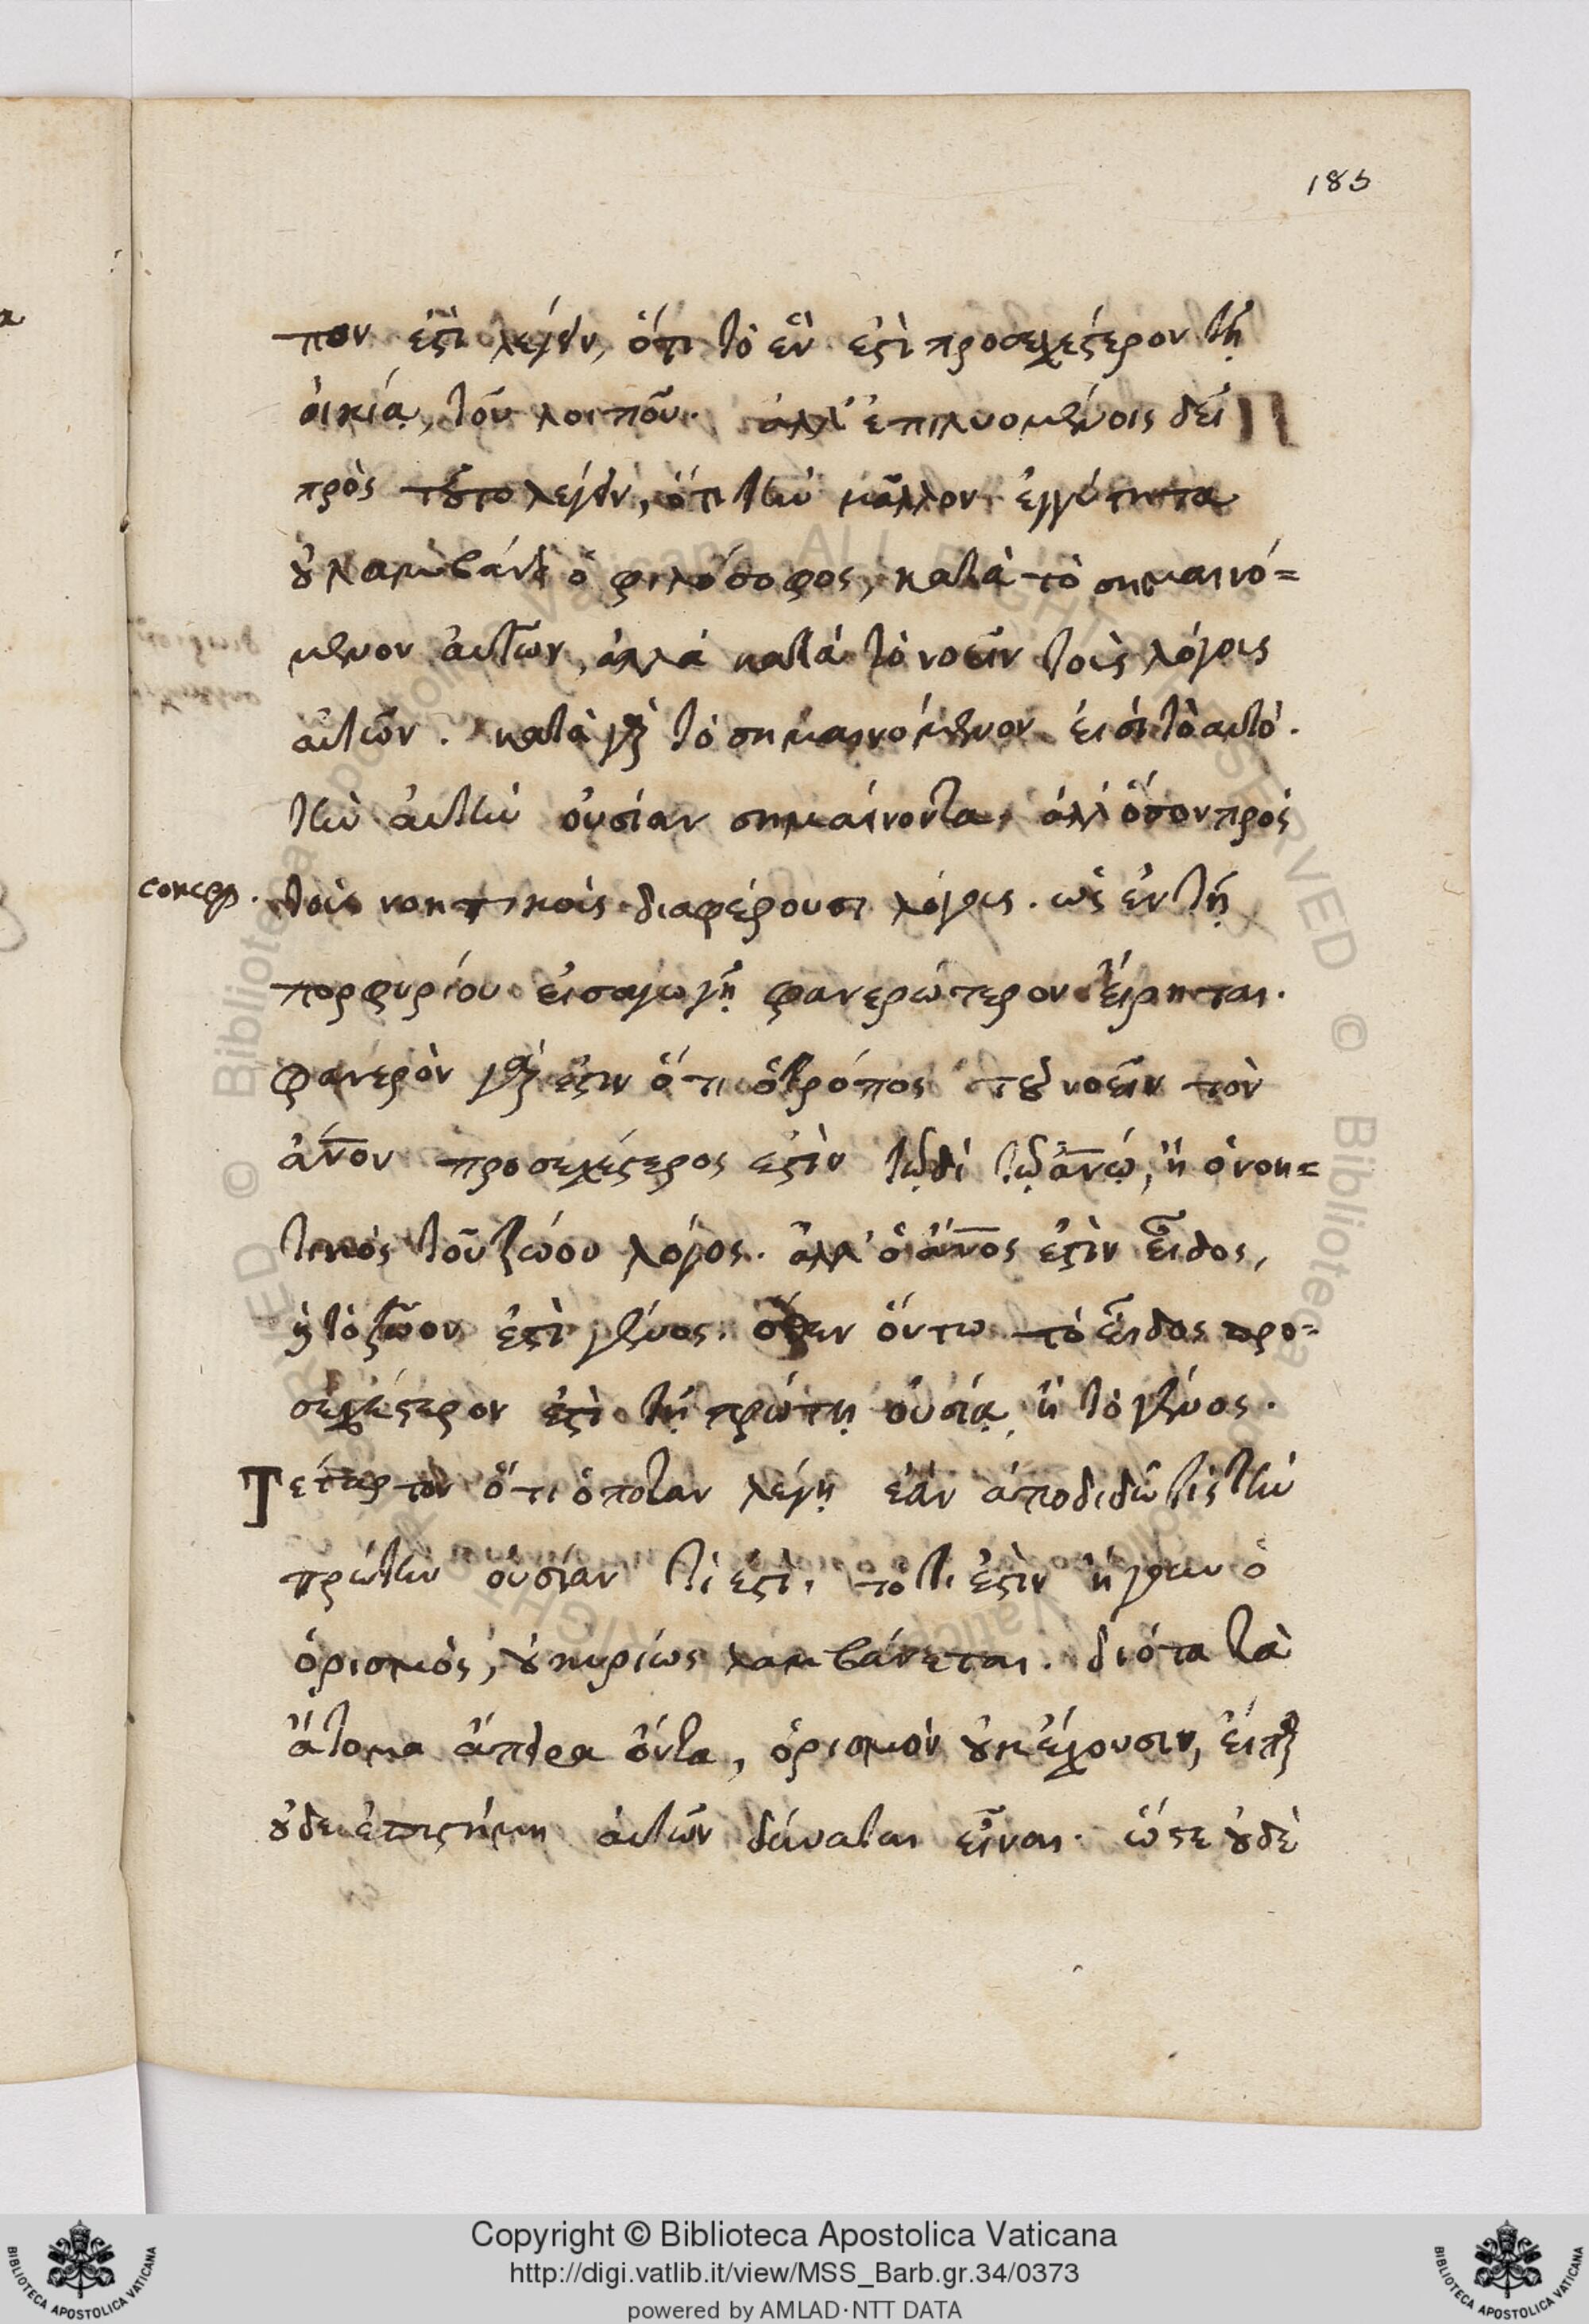 185
πον ἐστὶ λέγειν, ὅτι τὸ ἓν ἐστὶ προσεχέστερον τῇ
οἰκίᾳ, τοῦ λοιποῦ. ἀλλ' ἐπιλυομένοις δεῖ
πρὸς τοῦτο λέγειν, ὅτι τὴν μᾶλλον ἐγγύτητα
οὐ λαμβάνει ὁ φιλόσοφος, κατὰ τὸ σημαινό=
μενον αὐτῶν, ἀλλὰ κατὰ τὸ νοεῖν τοῖς λόγοις
αὐτῶν. κατὰ γὰρ τὸ σημαινόμενον εἰσὶ τὸ αὐτό.
τὴν αὐτὴν οὐσίαν σημαίνοντα, ἀλλ' ὅσον πρὸς
τοῖς νοητικοῖς διαφέρουσι λόγοις. ὡς ἐν τῇ
πορφυρίου εἰσαγωγῇ φανερώτερον εἴρηται.
φανερὸν γὰρ ἐστιν ὅτι ὁ τρόπος τοῦ νοεῖν τὸν
ἄνον προσεχέστερος ἐστὶν τῳδὶ τῷ ἀνῳ, ἢ ὁ νοη=
τικὸς τοῦ ζώου λόγος. ἀλλ' ὁ ἄνος ἐστὶν εἶδος,
καὶ τὸ ζῶον ἐστὶ γένος. ὅθεν οὕτω τὸ εἶδος προ=
σεχέστερον ἐστὶ τῇ πρώτῃ οὐσίᾳ, ἢ τὸ γένος.
Τέταρτον ὅτι ὁπόταν λέγῃ ἐὰν ἀποδιδῷ τὶς τὴν
πρώτην οὐσίαν τί ἐστὶ, τὸ τί ἐστὶν ἤγουν ὁ
ὁρισμὸς, οὐ κυρίως λαμβάνεται. διότι τὰ
ἄτομα ἄπειρα ὄντα, ὁρισμὸν οὐκ ἔχουσιν, εἴπερ
οὐδὲ ἐπιστήμη αὐτῶν δύναται εἶναι. ὥστε οὐδὲ
Copyright © Biblioteca Apostolica Vaticana
http://digi.vatlib.it/view/MSS_Barb.gr.34/0373
powered by AMLAD·NTT DATA
BIBLIOTECA APOSTOLICA VATICANA
BIBLIOTECA APOSTOLICA VATICANA